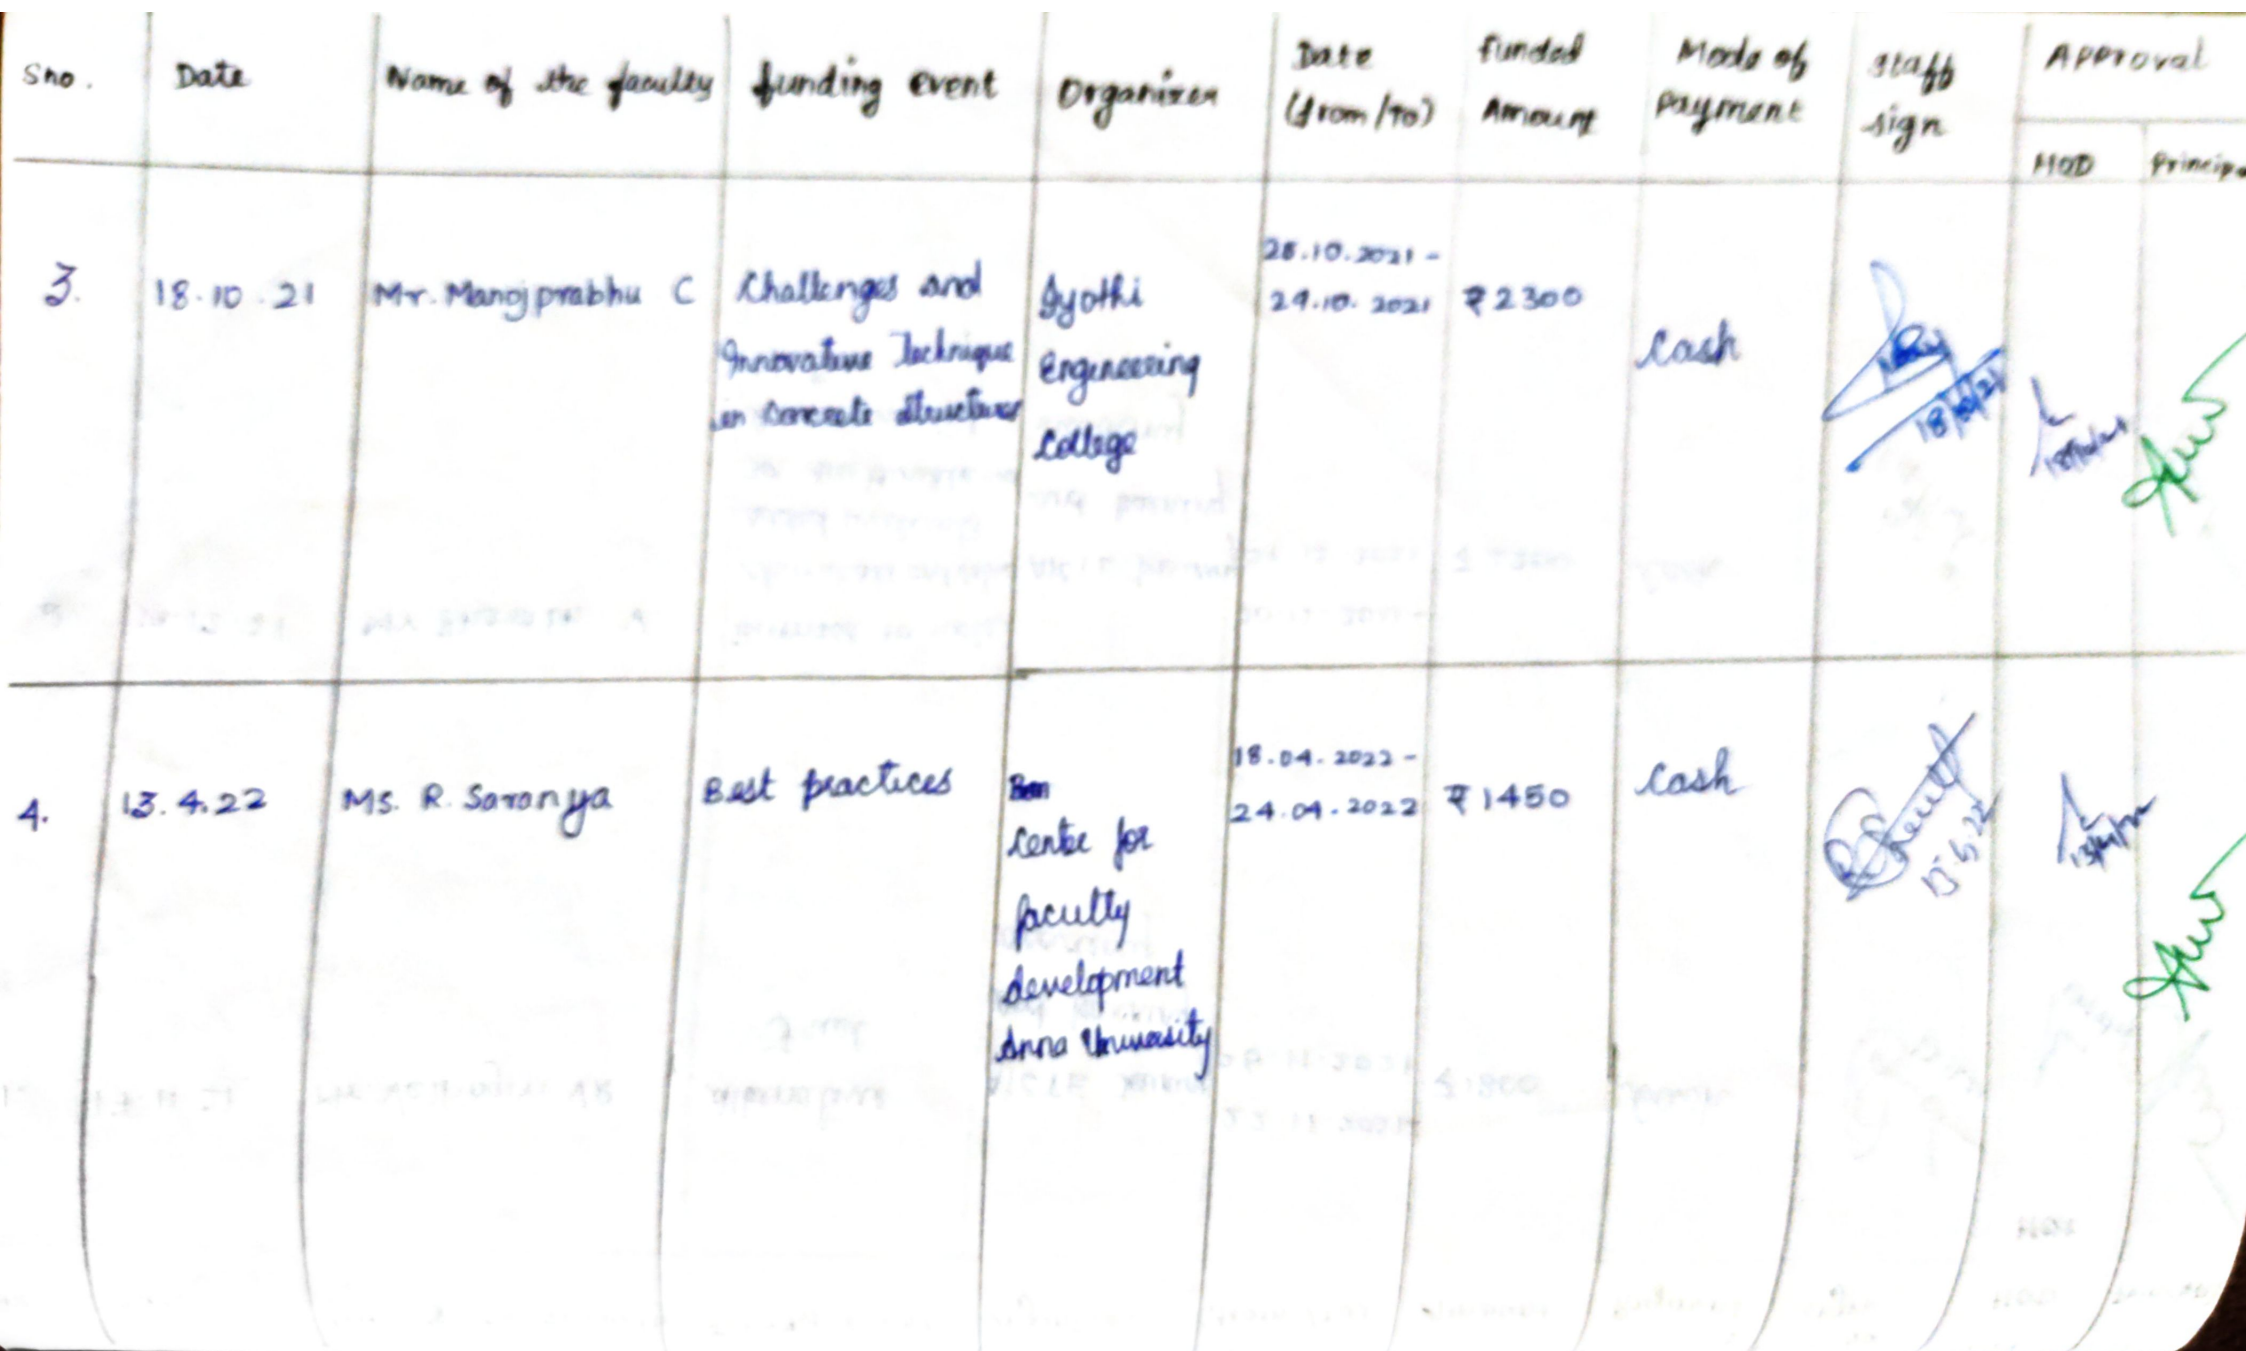 Sno.
Date
Name of the faculty
funding event
Organizer
Date
(from/to)
funded
Amount
Mode of
payment
staff
sign
Approval
HOD
Princip
3.
18.10.21
Mr. Manojprabhu C
Challenges and
Innovative Technique
in concrete structures
Jyothi
Engineering
College
25.10.2021 -
29.10.2021
₹2300
Cash
18/10/21
18/10/21
4.
13.4.22
Ms. R. Saranya
Best practices
Centre for
faculty
development
Anna University
18.04.2022 -
24.04.2022
₹1450
Cash
13/4/22